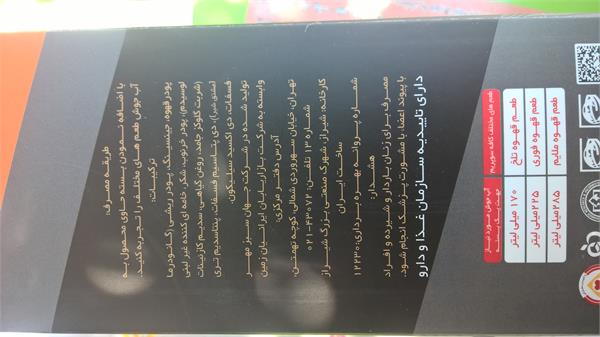 طریقه مصرف:
با اضافه نمودن بسته حاوی محصول به
آب جوش طعم های مختلف را تجربه کنید.
ترکیبات:
پودر قهوه، جینسینگ، پودر ریشی (گانودرما
لوسیدم)، پودر خرنوب، شکر، خامه ای کننده غیر لبنی
(شربت گلوکز جامد، روغن گیاهی، سدیم کازئینات
(مشتق شیر)، دی پتاسیم فسفات، پنتاسدیم تری
فسفات، دی اکسید سیلیکون.
تولید شده در شرکت جهان سبز مهر
وابسته به شرکت بازاریابان ایرانیان زمین
آدرس دفتر مرکزی:
تهران، خیابان سهروردی شمالی، کوچه تهمتن،
شماره ۱۳ تلفن: ۴۳۰۷۲-۰۲۱
کارخانه: شیراز، شهرک صنعتی بزرگ شیراز
ساخت ایران
شماره پروانه بهره برداری: ۱۲۲۳۰
هشدار:
مصرف برای زنان باردار و شیرده و افراد
با پیوند اعضا، با مشورت پزشک انجام شود.
دارای تاییدیه سازمان غذا و دارو
طعم های مختلف کافه سوپریم
آب جوش مورد نیاز
جهت یک بسته
طعم قهوه تلخ
۱۷۰ میلی لیتر
طعم قهوه فوری
۲۲۵ میلی لیتر
طعم قهوه ملایم
۲۸۵ میلی لیتر